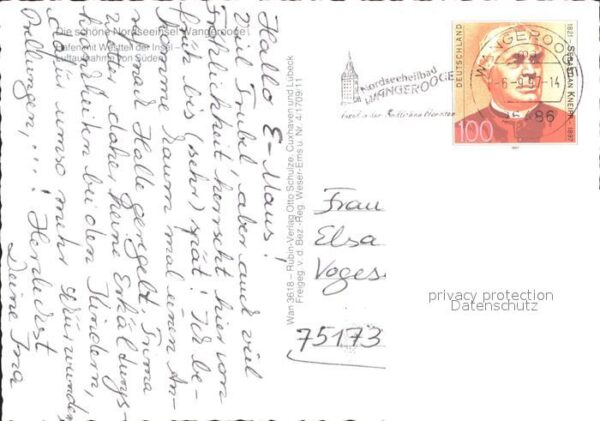 Die schöne Nordseeinsel Wangerooge
Hafen mit Westteil der Insel -
Luftaufnahme von Süden
Hallo E-Maus!
Viel Trubel aber auch viel
Fröhlichkeit herrscht hier von
früh bis (sehr) spät! Ich be-
komme kaum mal einen An-
ruf nach Halle geregelt. Prima
Wetter, daher keine Erkältungs-
krankheiten bei den Kindern,
dafür umso mehr Wurmwunden,
Prellungen, ...! Herzlichst
Deine Ina
Wan 3618 – Rubin-Verlag Otto Schulze, Cuxhaven und Lübeck
Freigeg. v. d. Bez.-Reg. Weser-Ems u. Nr. 4/1709/11
Nordseeheilbad
WANGEROOGE
WANGEROOGE
-6.-9.97-14
26486
DEUTSCHLAND
100
1821 - SEBASTIAN KNEIPP - 1897
1997
Frau
Elsa
Voges
75173
privacy protection
Datenschutz